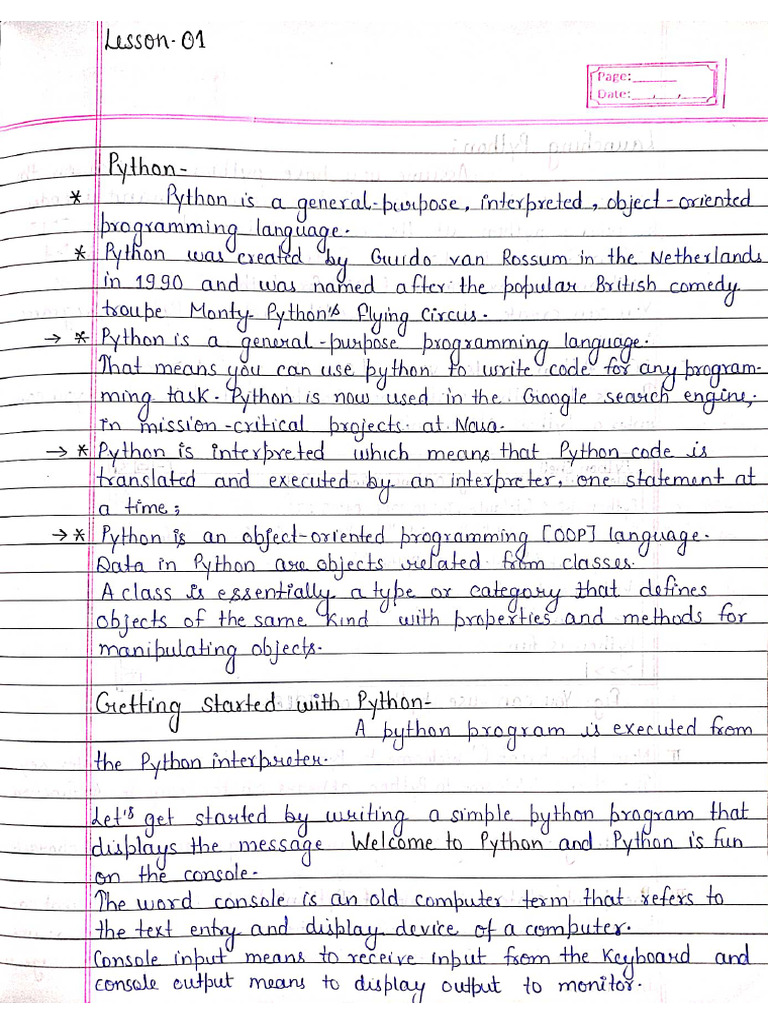 Lesson-01
Page:
Date:
Python-
* Python is a general-purpose, interpreted, object-oriented
programming language.
* Python was created by Guido van Rossum in the Netherlands
in 1990 and was named after the popular British comedy
troupe Monty Python's Flying Circus.
→ * Python is a general-purpose programming language.
That means you can use python to write code for any program-
ming task. Python is now used in the Google search engine,
in mission-critical projects at Nasa.
→ * Python is interpreted which means that Python code is
translated and executed by an interpreter, one statement at
a time;
→ * Python is an object-oriented programming [OOP] language.
Data in Python are objects related from classes.
A class is essentially a type or category that defines
objects of the same kind with properties and methods for
manipulating objects.
Getting started with Python-
A python program is executed from
the Python interpreter.
Let's get started by writing a simple python program that
displays the message Welcome to Python and Python is fun
on the console.
The word console is an old computer term that refers to
the text entry and display device of a computer.
Console input means to receive input from the keyboard and
console output means to display output to monitor.